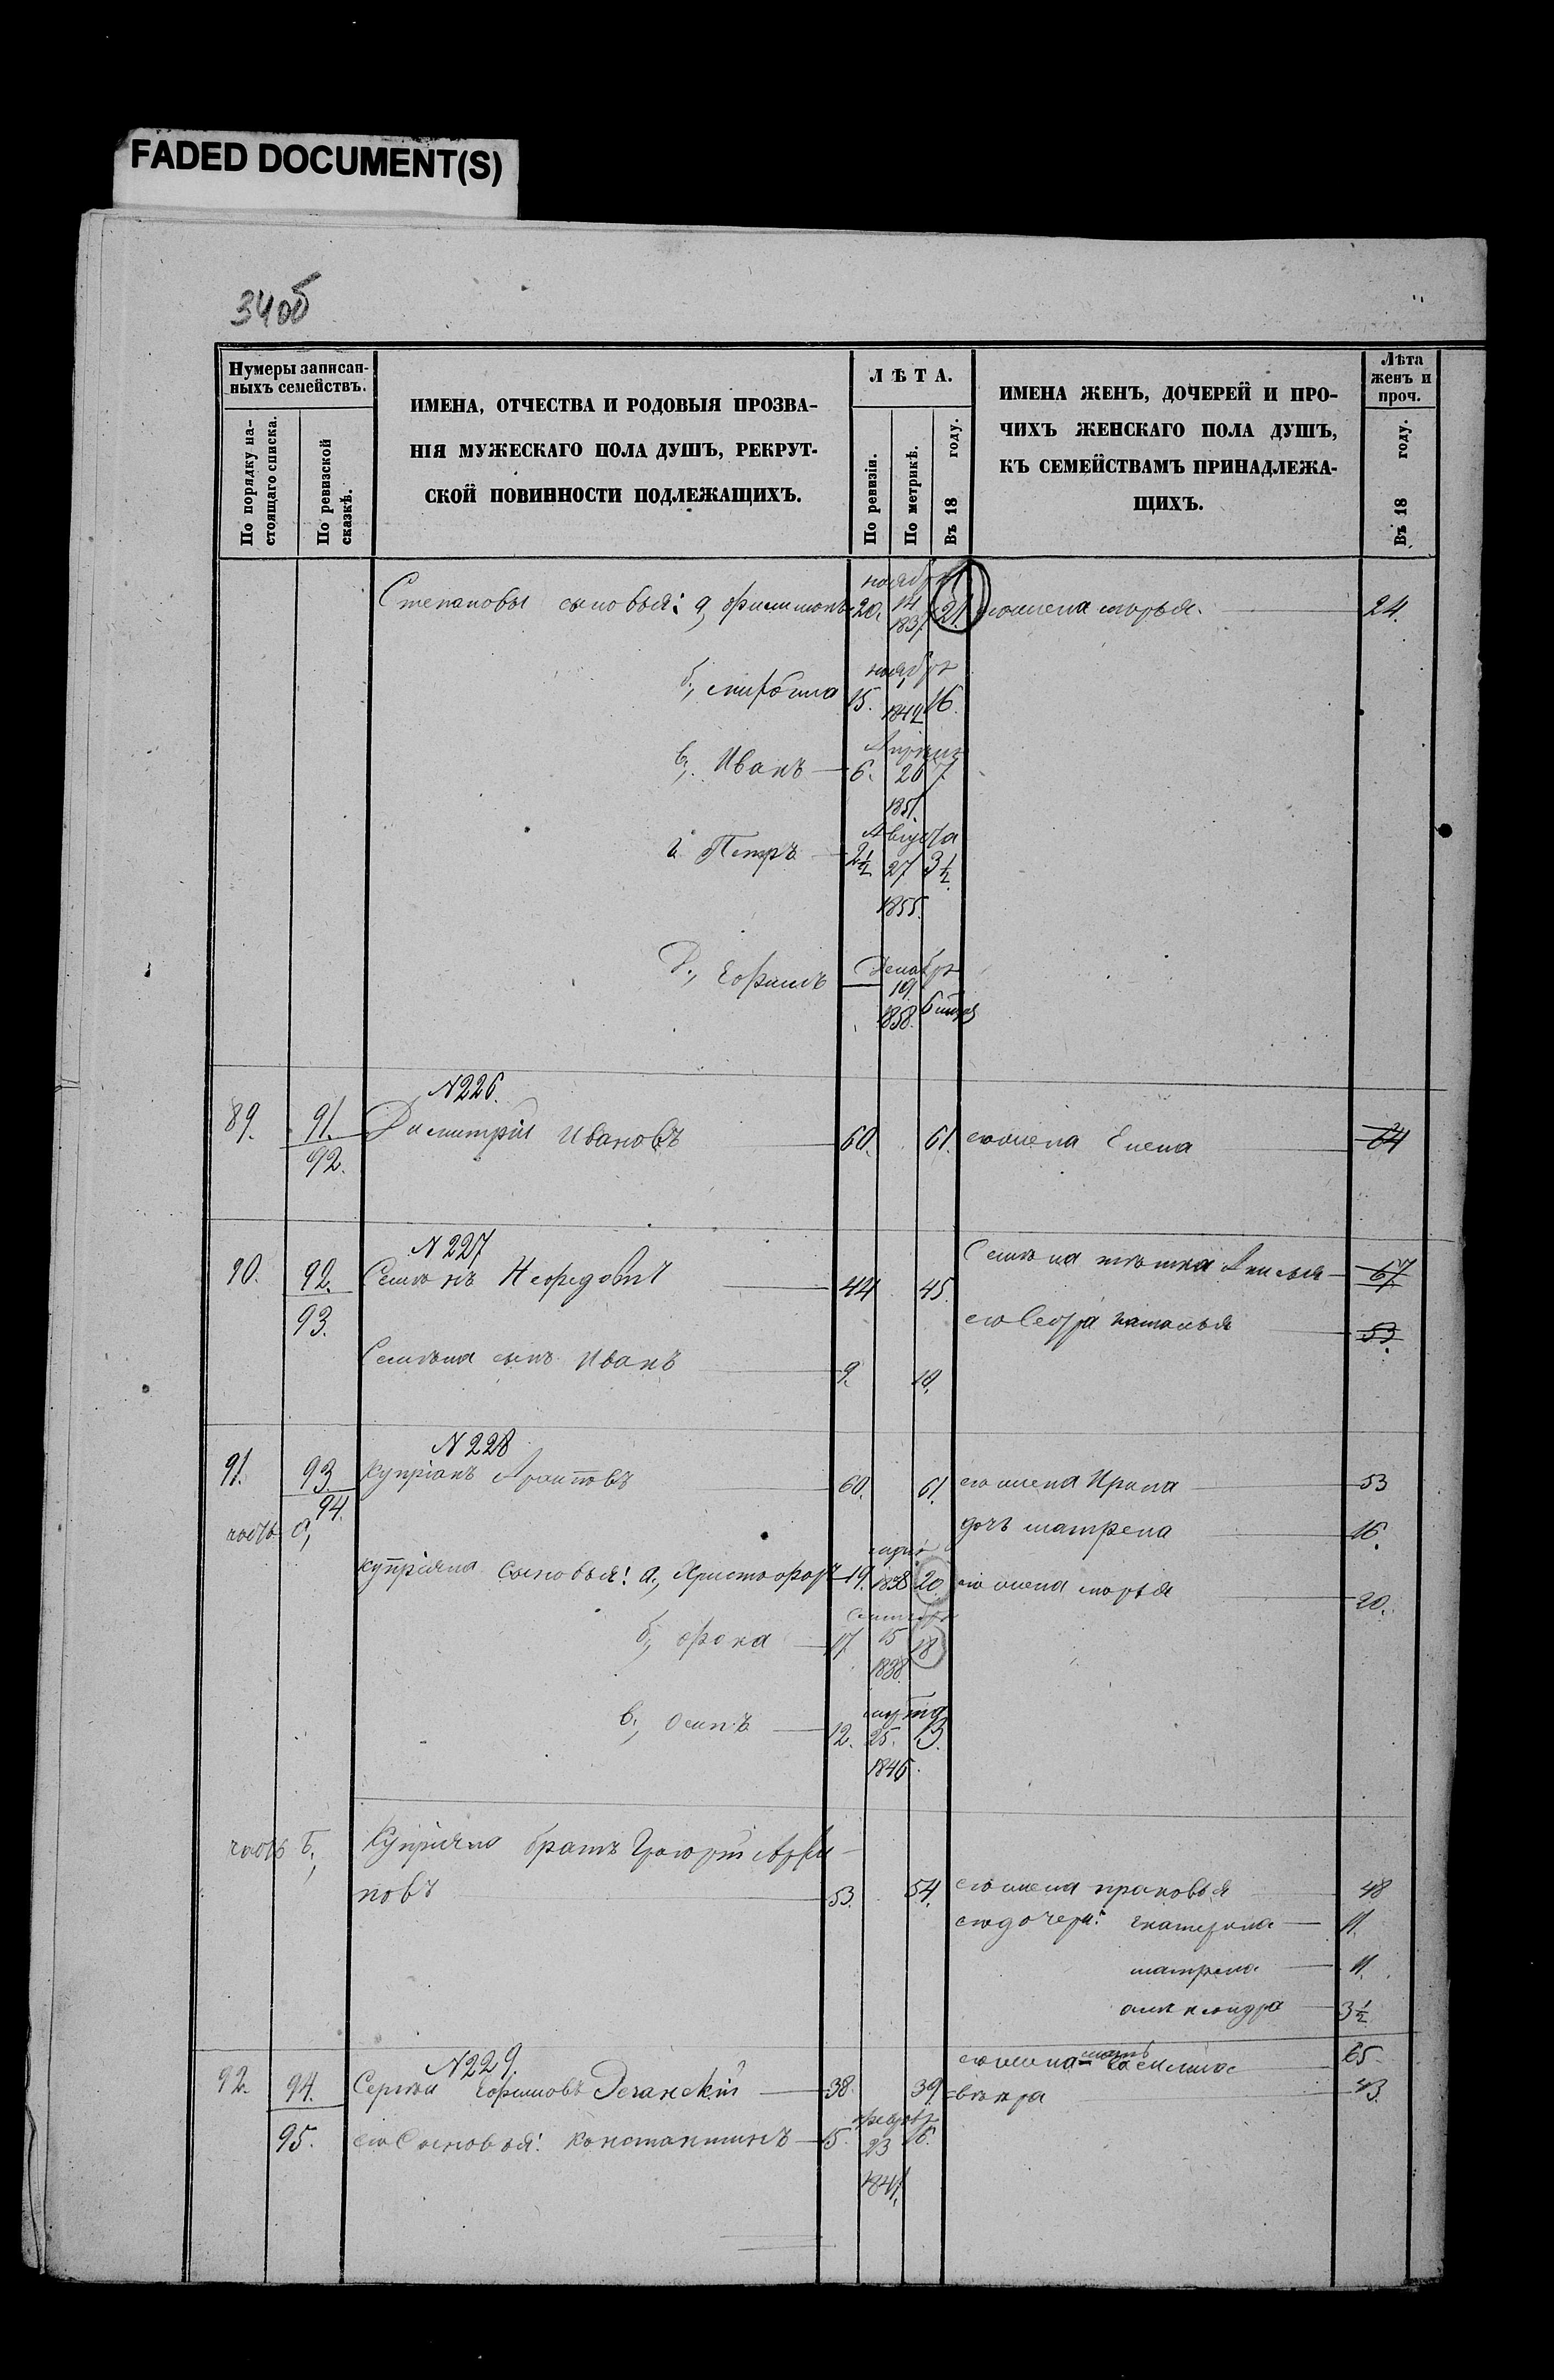 FADED DOCUMENT(S)
34об
Нумеры записан-
ныхъ семействъ.
По порядку на-
стоящаго списка.
По ревизской
сказкѣ.
ИМЕНА, ОТЧЕСТВА И РОДОВЫЯ ПРОЗВА-
НІЯ МУЖЕСКАГО ПОЛА ДУШЪ, РЕКРУТ-
СКОЙ ПОВИННОСТИ ПОДЛЕЖАЩИХЪ.
ЛѢТА.
По ревизіи.
По метрикѣ.
Въ 18 году.
ИМЕНА ЖЕНЪ, ДОЧЕРЕЙ И ПРО-
ЧИХЪ ЖЕНСКАГО ПОЛА ДУШЪ,
КЪ СЕМЕЙСТВАМЪ ПРИНАДЛЕЖА-
ЩИХЪ.
Лѣта
женъ и
проч.
Въ 18 году.
Степановы сыновья: а, филимонъ 20. ноября 14 1837. 21. его жена марья. 24.
б., 15. ноября 1842 16.
в, Иванъ 6. Апреля 26 1851. 7
г. Петръ 2½ Августа 27 1855. 3½
д., Ефимъ Декабря 19 1858.
N 226.
89. 91. Димитрій Ивановъ 60. 61. его жена Елена 64
92.
N 227
90. 92. Семенъ Нефедовъ 44 45. Семена тетка Анисья 67
93. его Сестра наталья 53
Семена сынъ Иванъ 9. 10.
N 228
91. 93. купріанъ 60. 61. его жена Ирина 53
94.
часть а, дочь матрена 16.
купріяна сыновья: а., Христофоръ 19. 1838 20. его жена марья 20.
б, фока 17. Сентября 15 1838. 18
в., осипъ 12. 25. 1846. 13.
часть Б., Купріяна братъ Григорій
новъ 53. 54. его жена прасковья 48
его дочери: екатерина 11.
матрена 11.
александра 3½
N 229.
его жена мать василиса 65.
92. 94. Сергѣй Ефимовъ 38. 39.
43.
95. его Сыновья: константинъ 15. февраля 23 1841. 16.